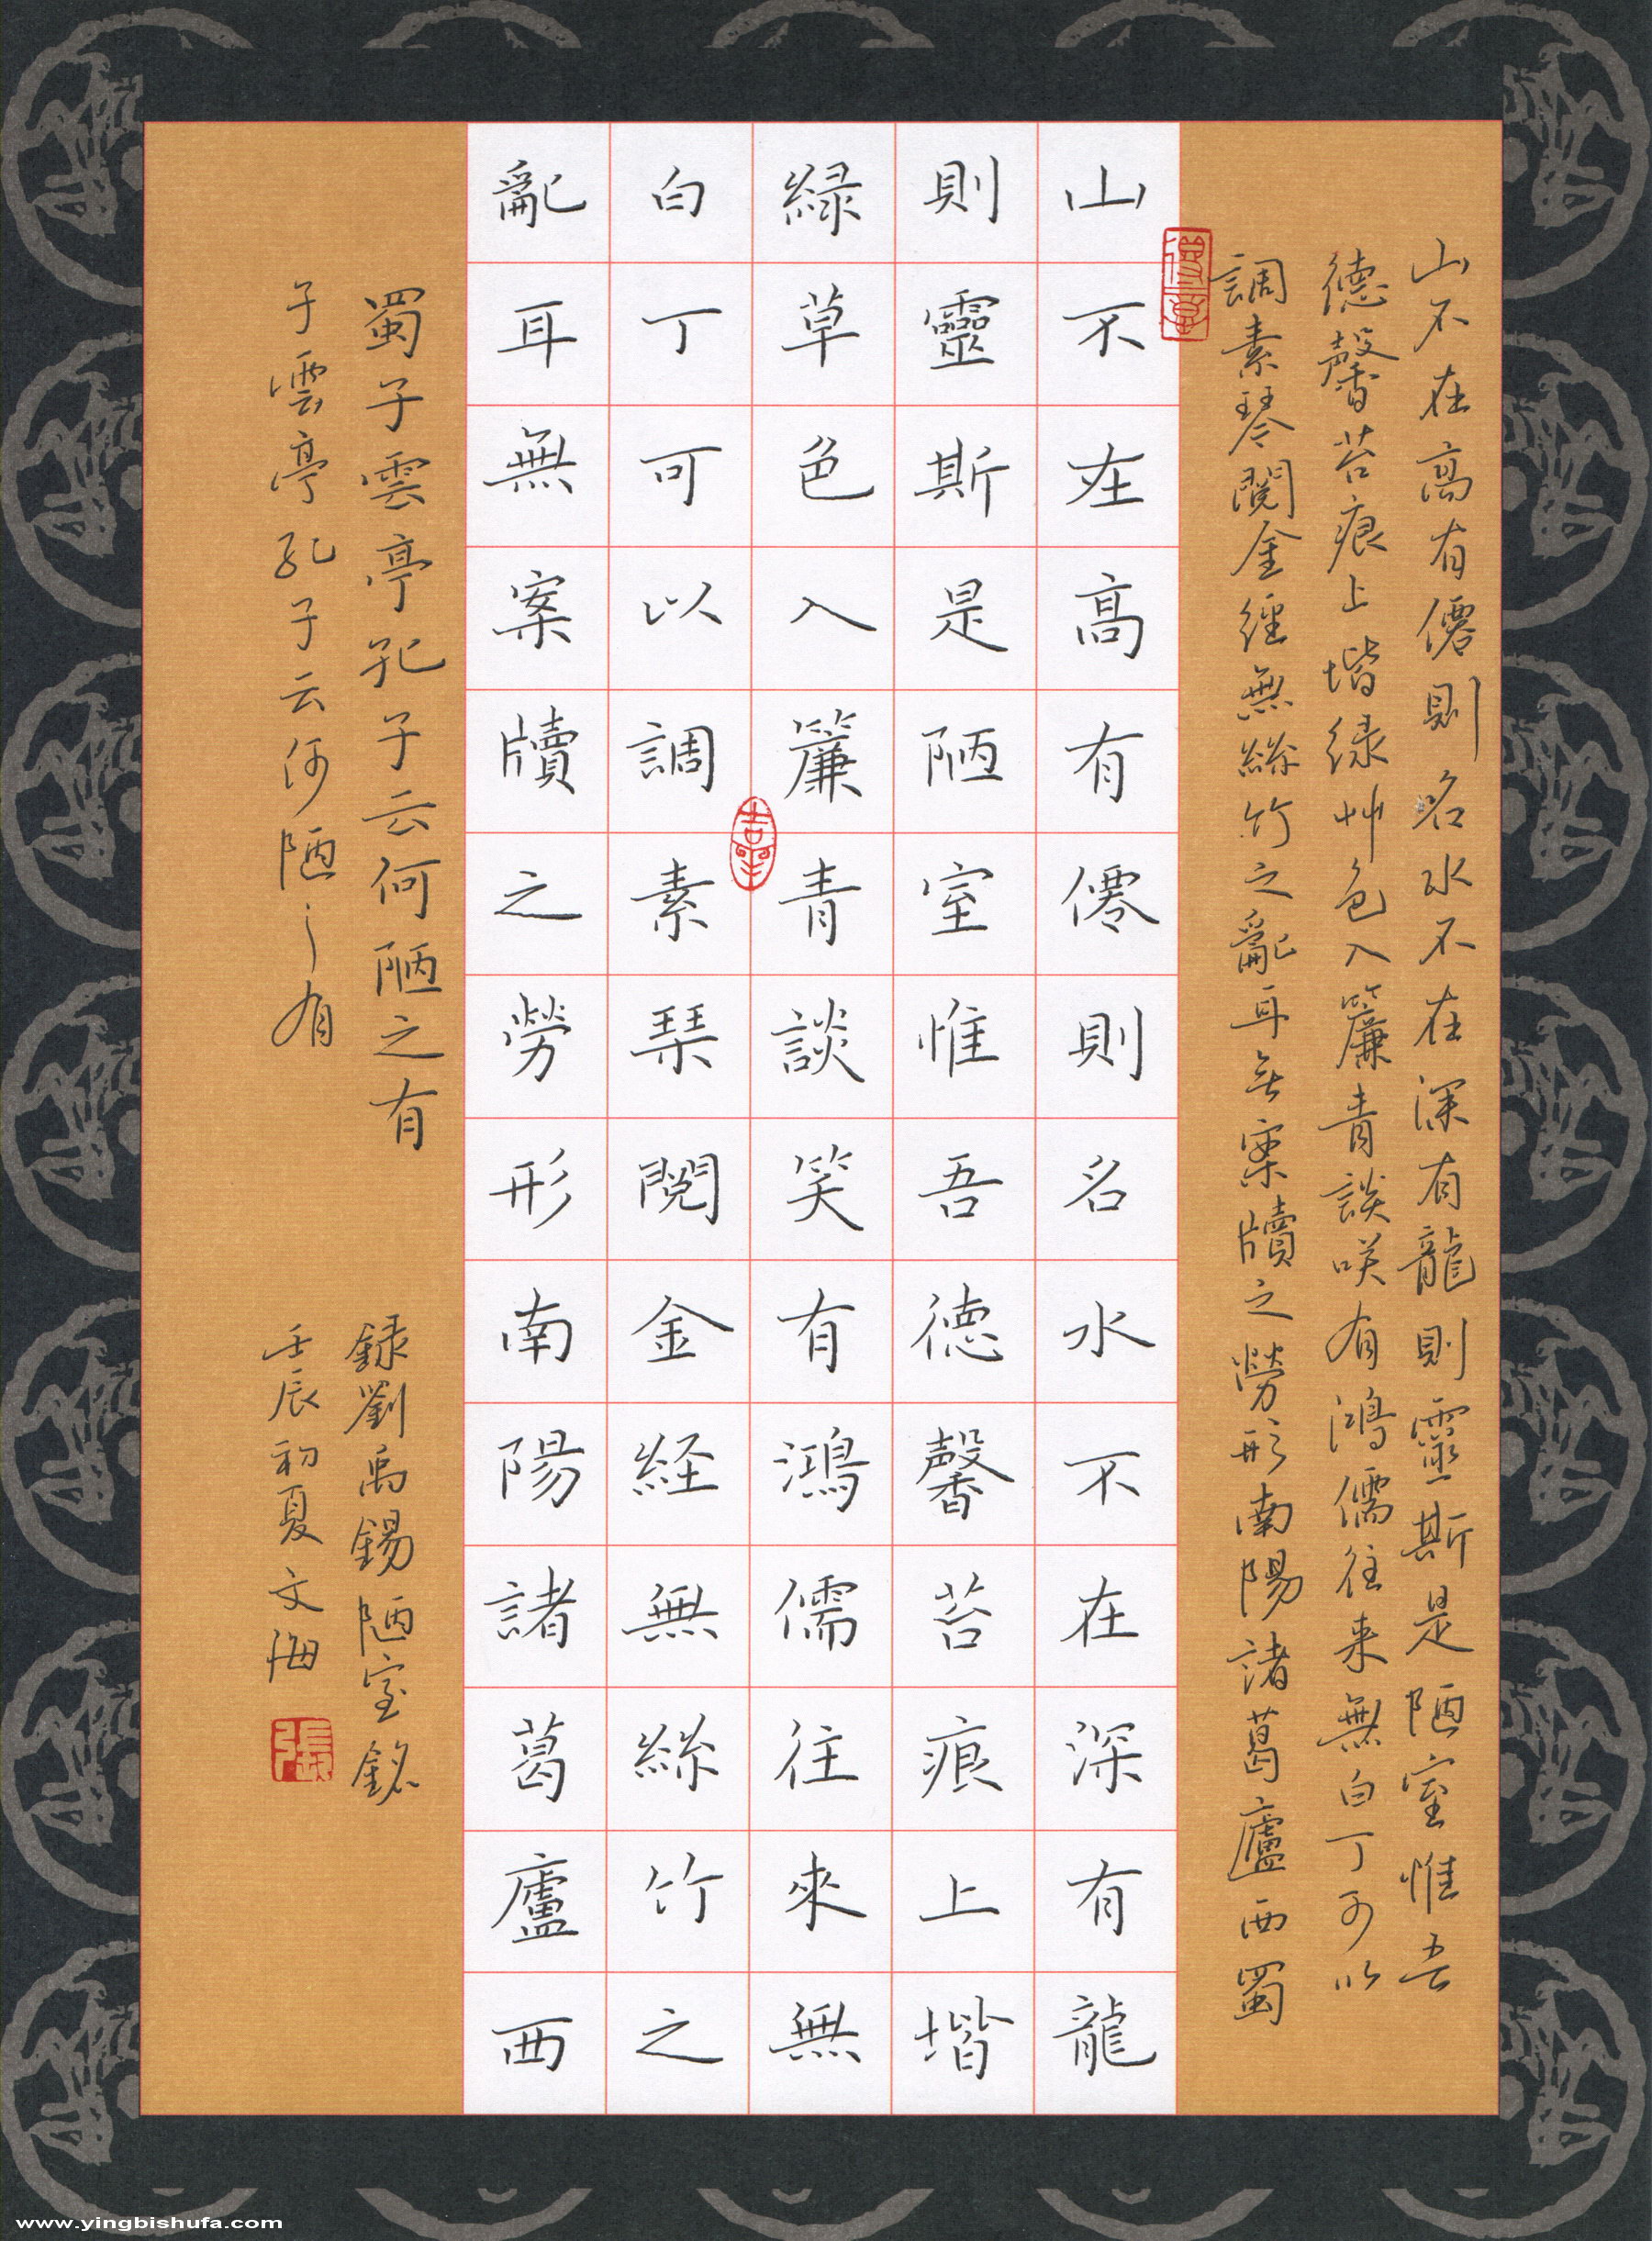 山不在高有僊則名水不在深有龍則靈斯是陋室惟吾
德馨苔痕上堦绿艸色入簾青談咲有鴻儒往来無白丁可以
調素琴閱金經無絲竹之亂耳無案牘之勞形南陽諸葛廬西蜀
山不在高有僊則名水不在深有龍
則靈斯是陋室惟吾德馨苔痕上堦
緑草色入簾青談笑有鴻儒往來無
白丁可以調素琴閱金経無絲竹之
亂耳無案牘之勞形南陽諸葛廬西
蜀子雲亭孔子云何陋之有
子雲亭孔子云何陋之有
録劉禹錫陋室銘
壬辰初夏文海
張
www.yingbishufa.com